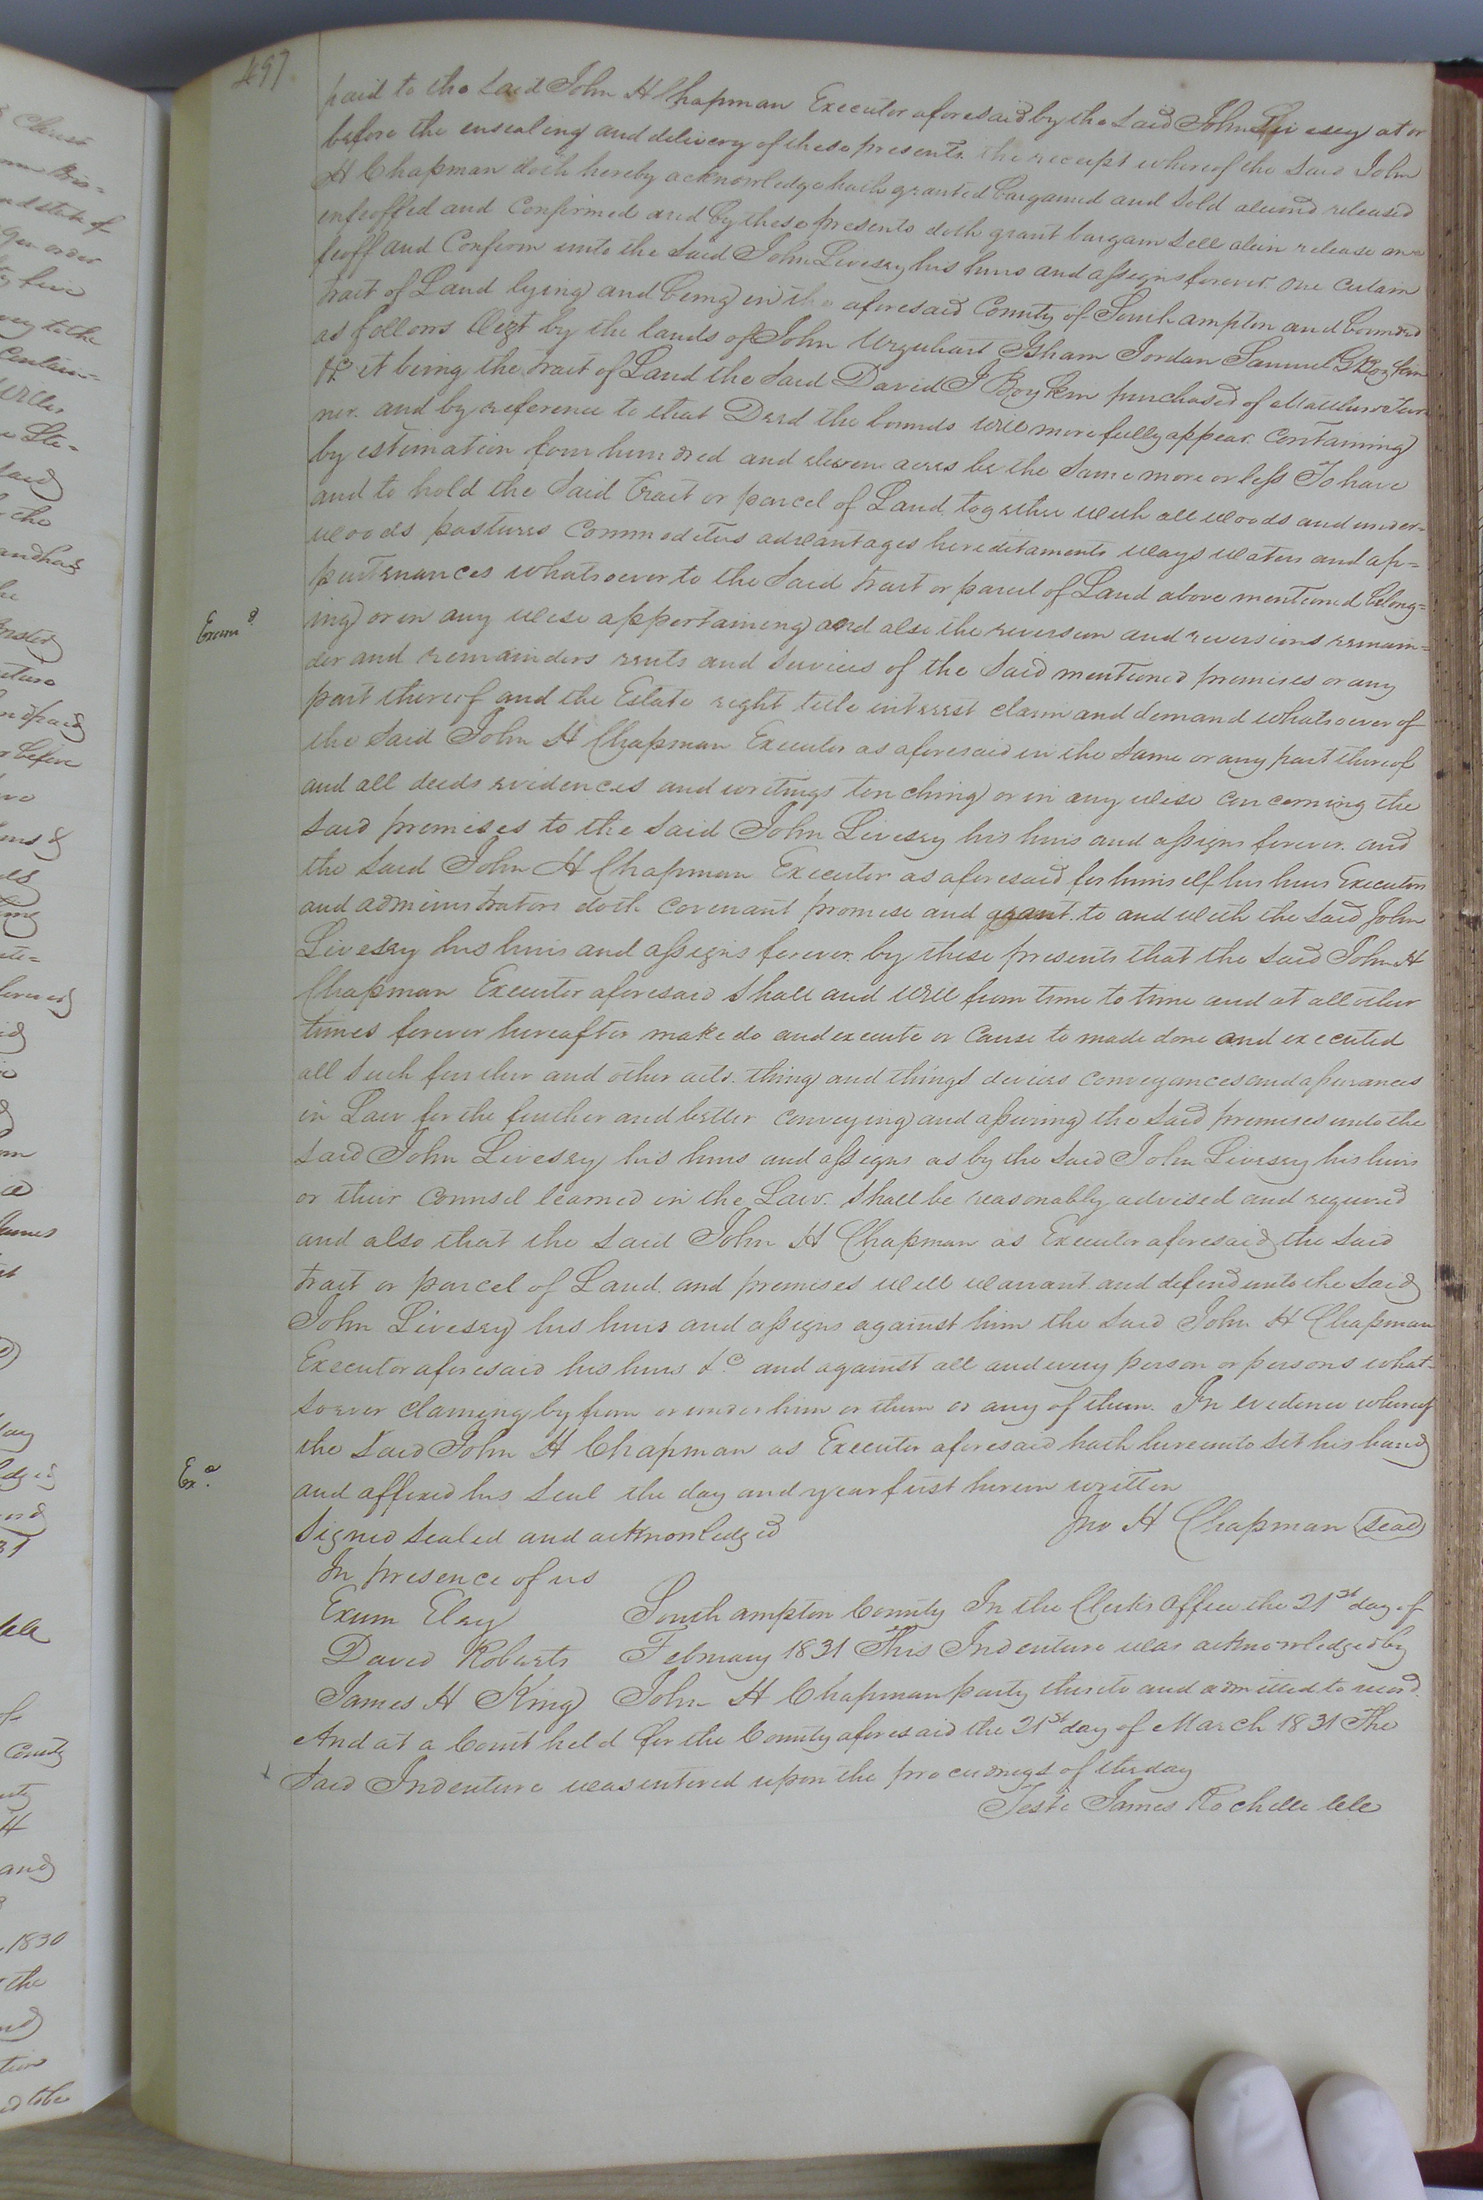 497
paid to the said John H Chapman Executor aforesaid by the said John Livesey at or
before the ensealing and delivery of these presents the receipt whereof the said John
H Chapman doth hereby acknowledge hath granted bargained and sold aliend released
enfeoffed and Confirmed and by these presents doth grant bargain sell alien release en
feoff and Confirm unto the said John Livesey his heirs and assigns forever one certain
tract of Land lying and being in the aforesaid County of Southampton and bounded
as follows by the lands of John Urquhart Isham Jordan Samuel G Boykin
&c it being the tract of Land the said David J Boykin purchased of Matthew Tur
ner. and by reference to that Deed the bounds will more fully appear. Containing
by estimation four hundred and eleven acres be the same more or less To have
and to hold the said tract or parcel of Land together with all woods and under-
woods pastures Commodities advantages hereditaments ways waters and ap=
purtenances whatsoever to the said tract or parcel of Land above mentioned belong=
ing or in any wise appertaining and also the reversion and reversions remain=
der and remainders rents and services of the said mentioned premises or any
part thereof and the Estate right title interest claim and demand whatsoever of
the said John H Chapman Executor as aforesaid in the same or any part thereof
and all deeds evidences and writings touching or in any wise concerning the
said premises to the said John Livesey his heirs and assigns forever. and
the said John H Chapman Executor as aforesaid for himself his heirs Executors
and administrators doth covenant promise and grant to and with the said John
Livesey his heirs and assigns forever by these presents that the said John H
Chapman Executor aforesaid shall and will from time to time and at all other
times forever hereafter make do and execute or cause to made done and executed
all such further and other acts. thing and things devices conveyances and assurances
in Law for the further and better conveying and assuring the said premises unto the
said John Livesey his heirs and assigns as by the said John Livesey his heirs
or their counsel learned in the Law. shall be reasonably advised and required
and also that the said John H Chapman as Executor aforesaid the said
tract or parcel of Land and premises will warrant and defend unto the said
John Livesey his heirs and assigns against him the said John H Chapman
Executor aforesaid his heirs &c and against all and every person or persons what=
soever claming by from or under him or them or any of them. In evidence whereof
the said John H Chapman as Executor aforesaid hath hereunto set his hand
and affixed his seal the day and year first herein written
Signed sealed and acknowledged Jno H Chapman seal
In presence of us
Exum Eley Southampton County In the Clerks Office the 21st day of
David Roberts February 1831 This Indenture was acknowledged by
James H King John H Chapman party thereto and admitted to record.
And at a Court held for the County aforesaid the 21st day of March 1831 The
said Indenture was entered upon the proceedings of the day
Teste James Rochelle clk
Examd
Exd